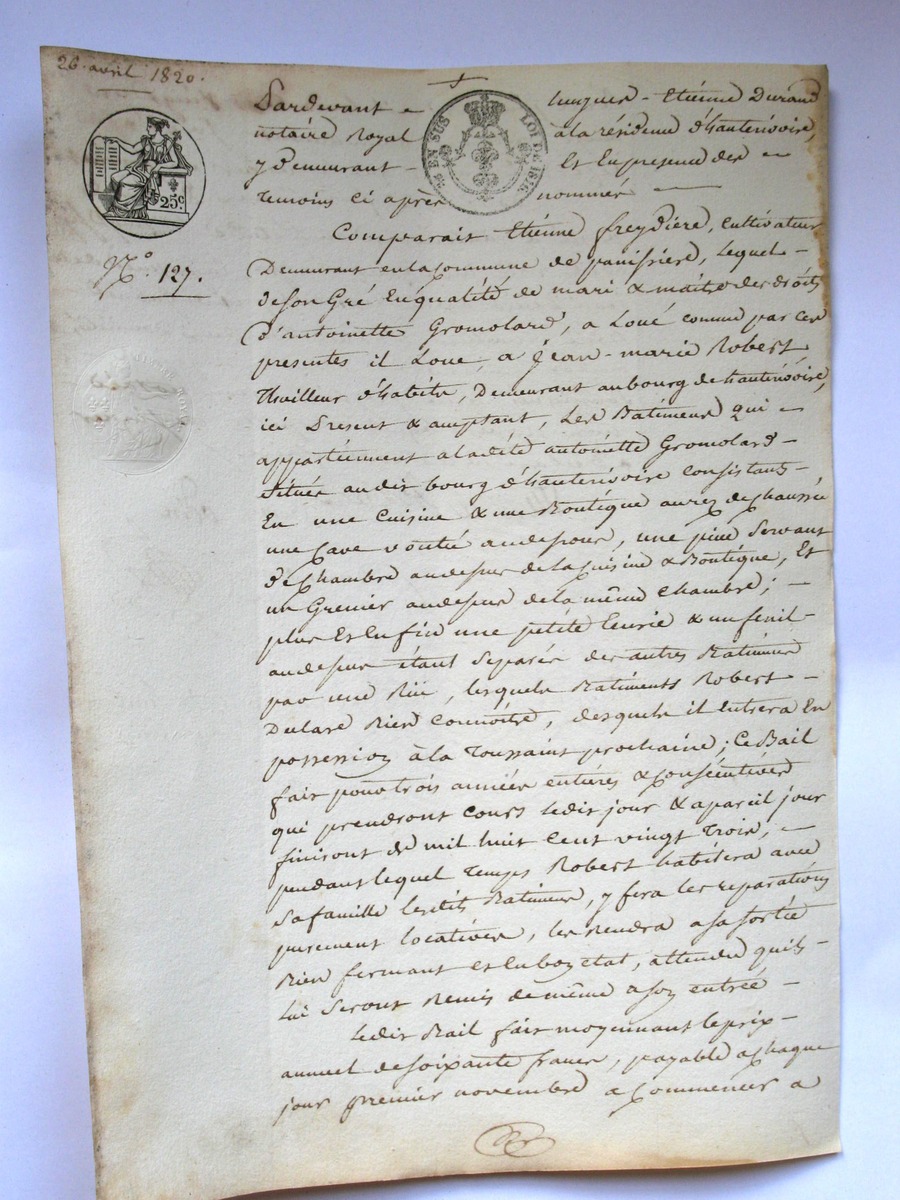 26 avril 1820.
Pardevant hugues-Etiénne Durand
notaire Royal à la résidence d'hauterivoire,
y demeurant Et En presence des
temoins ci après nommés
EN SUS LOI DE 1816.
25c.
N.o 127.
Comparait Etiénne freydiere, cultivateur
Demeurant en la commune de panissiere, lequel
de son Gré En qualité de mari & maitre des droits
d'antoinette Gromolard, a Loué comme par ces
presentes il Loue, a Jean-marie Robert
thailleur d'habits, Demeurant au bourg de hauterivoire,
ici Present & acceptant, Les Batimens qui
appartiénnent a la dité antoinette Gromolard
situés au dit bourg d'hauterivoire consistans
En une Cuisine & une Boutique au rez de chaussée
une Cave voutée au dessous, une piéce Servant
de Chambre au dessus de la Cuisine & Boutique, Et
un Grenier au dessus de la même Chambre;
plus Et Enfin une petité Ecurie & un fenil
au dessus étant Separés des autres Batimens
par une Rüe, lesquels Batiments Robert
Declare Bien Connoitre, desquels il Entrera En
possession à la toussaint prochaine; Ce Bail
fait pour trois années entiéres & consécutives
qui prendront cours ledit jour & a pareil jour
finiront de mil huit cent vingt trois,
pendant lequel Temps Robert habitera avec
Sa famille lesdits Batimens, y fera les reparations
purement locatives, les rendra a sa sortie
Bien fermant et en bon etat, attendu qu'ils
lui Seront Remis de même a son entrée
Ledit Bail fait moyennant le prix
annuel de soixante francs, payable a Chaque
jour premier novembre a Commencer a